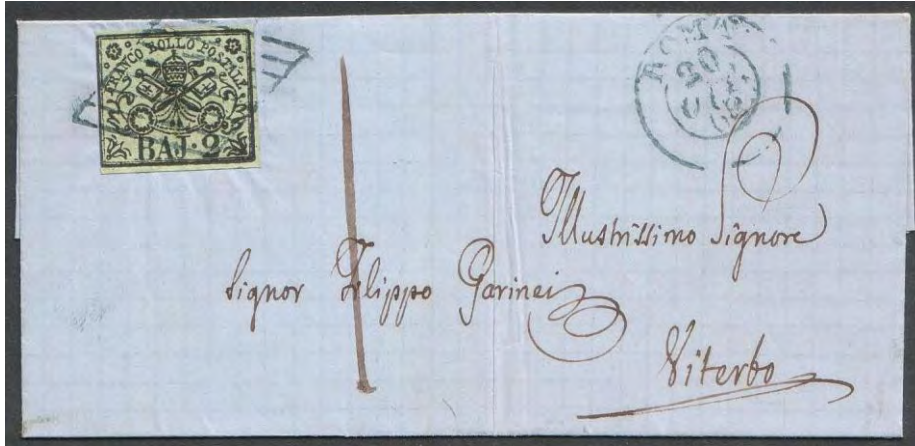 FRANCO BOLLO POSTALE
BAJ·2
ROMA
20
Illustrissimo Signore
Signor Filippo Garinei
Viterbo